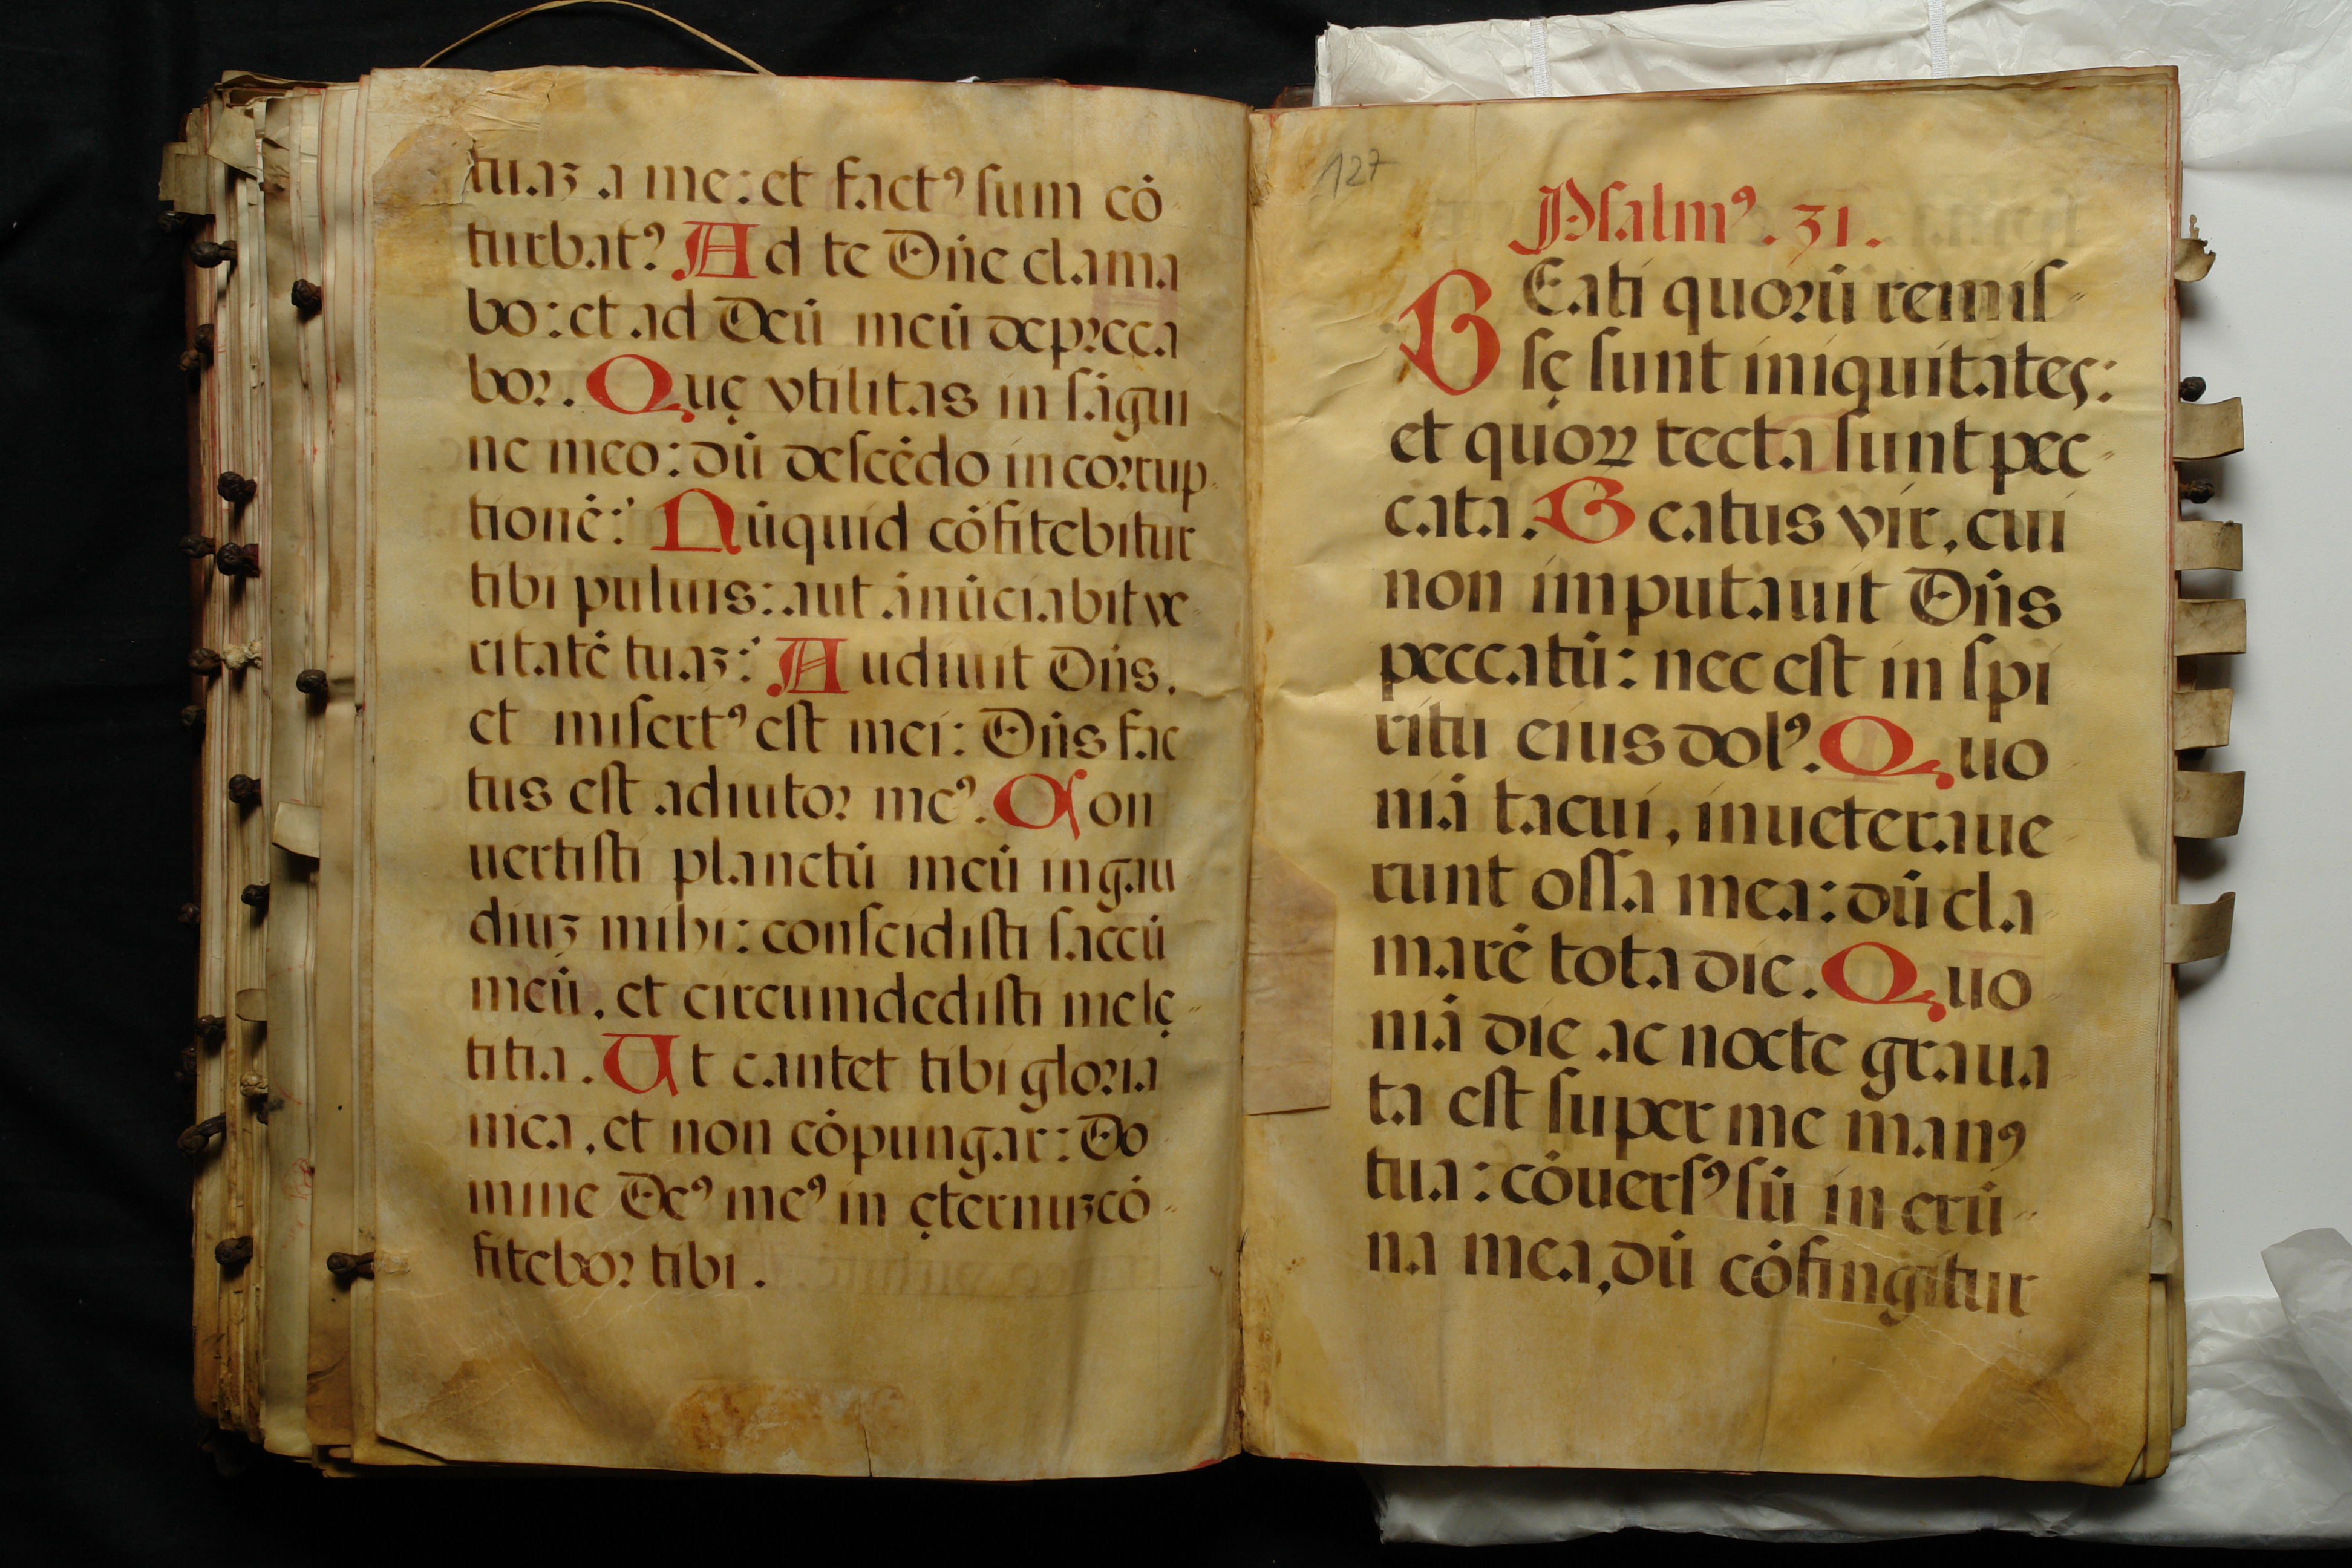 tuaʒ a me: et factꝰ ſum cō
turbatꝰ Ad te Dn̄e clama
bo: et ad Deū meū depꝛeca
boꝛ. Quę vtilitas in ſāgui
ne meo: dū deſcēdo in coꝛrup-
tionē: Nūquid cōfitebitur
tibi puluis: aut ānūciabit ve-
ritatē tuaʒ: Audiuit Dn̄s,
et miſertꝰ eſt mei: Dn̄s fac
tus eſt adiutoꝛ meꝰ. Con
uertiſti planctū meū in gau
diuʒ mihi: conſcidiſti ſaccū
meū, et circumdediſti me lę-
titia. Ut cantet tibi gloꝛia
mea, et non cōpungar: Do
mine Deꝰ meꝰ in ęternuʒ cō-
fiteboꝛ tibi.
127
Pſalmꝰ. 31.
BEati quoꝛū remiſ-
ſę ſunt iniquitates:
et quoꝝ tecta ſunt pec-
cata. Beatus vir, cui
non imputauit Dn̄s
peccatū: nec eſt in ſpi
ritu eius dolꝰ. Quo
niā tacui, inueteraue
runt oſſa mea: dū cla
marē tota die. Quo
niā die ac nocte graua
ta eſt ſuper me manꝰ
tua: cōuerſꝰ ſū in erū-
na mea, dū cōfingitur